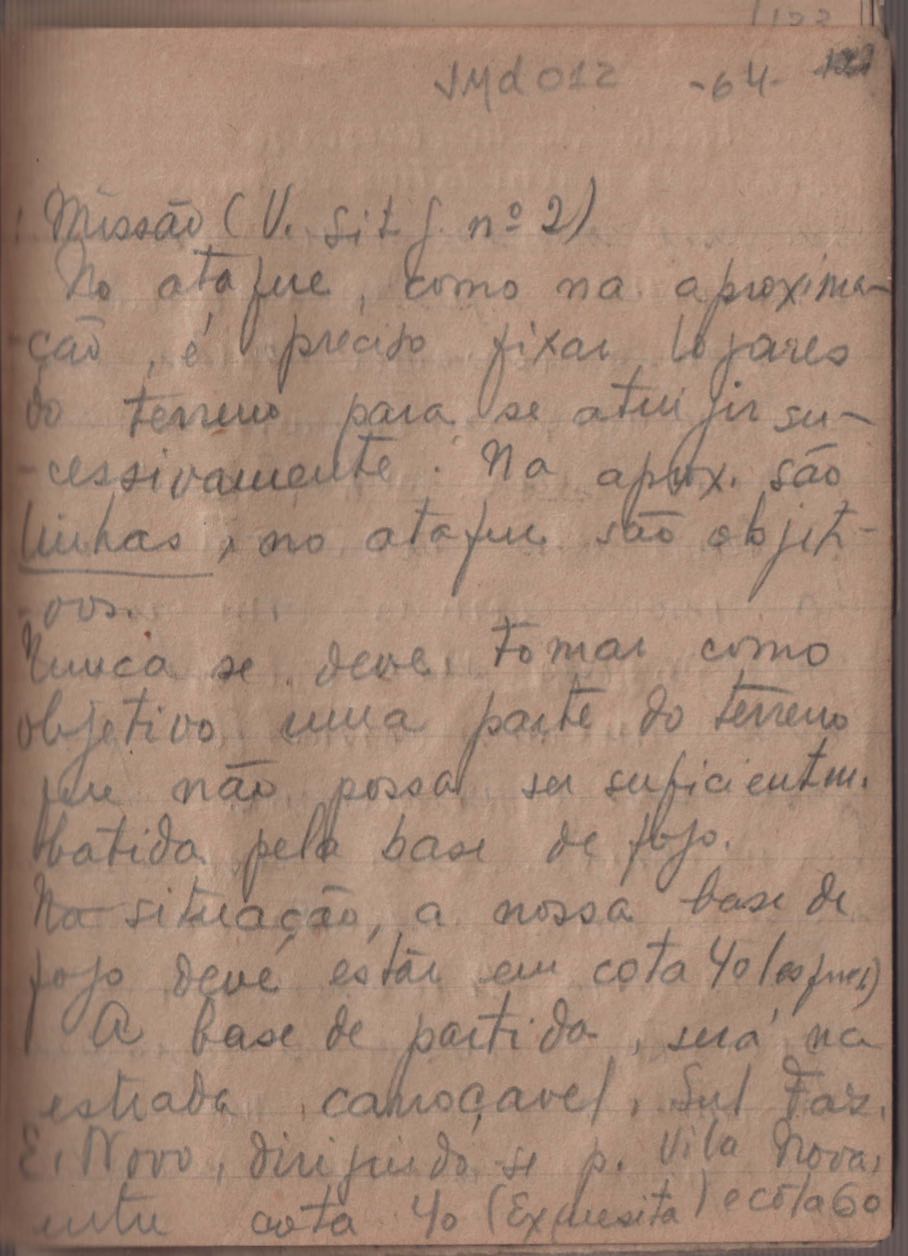 123
JMd012 -64-
Missão (V. Sit g. nº 2)
No ataque, como na aproxima-
ção, é preciso fixar logares
do terreno para se atingir su-
cessivamente. Na aprox. são
linhas, no ataque são objeti-
vos.
Nunca se deve tomar como
objetivo uma parte do terreno
que não possa ser suficientm.
batida pela base de fogo.
Na situação, a nossa base de
fogo deve estar em cota 40
A base de partida, será na
estrada carroçavel, Sul Faz.
E. Novo, dirigindo-se p. Vila Nova,
entre cota 40 (Exquesita) e cota 60